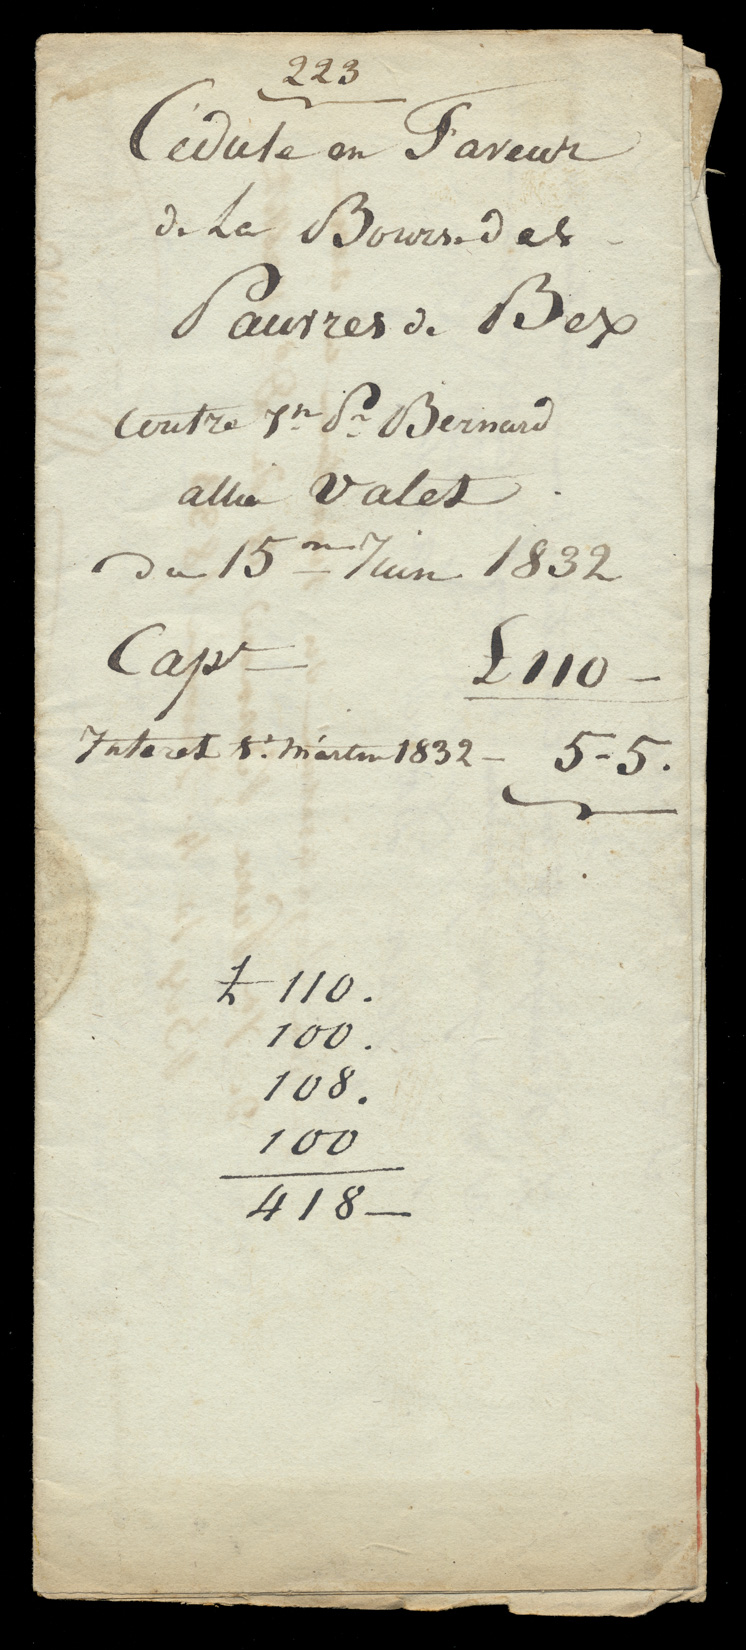 223
Cédule en Faveur
de La Bourse des
Pauvres de Bex
Contre Jn Pre Bernard
allié Valet
du 15me Juin 1832
Capl £ 110 —
Interet St. Martin 1832 — 5-5.
£ 110.
100.
108.
100
418 —